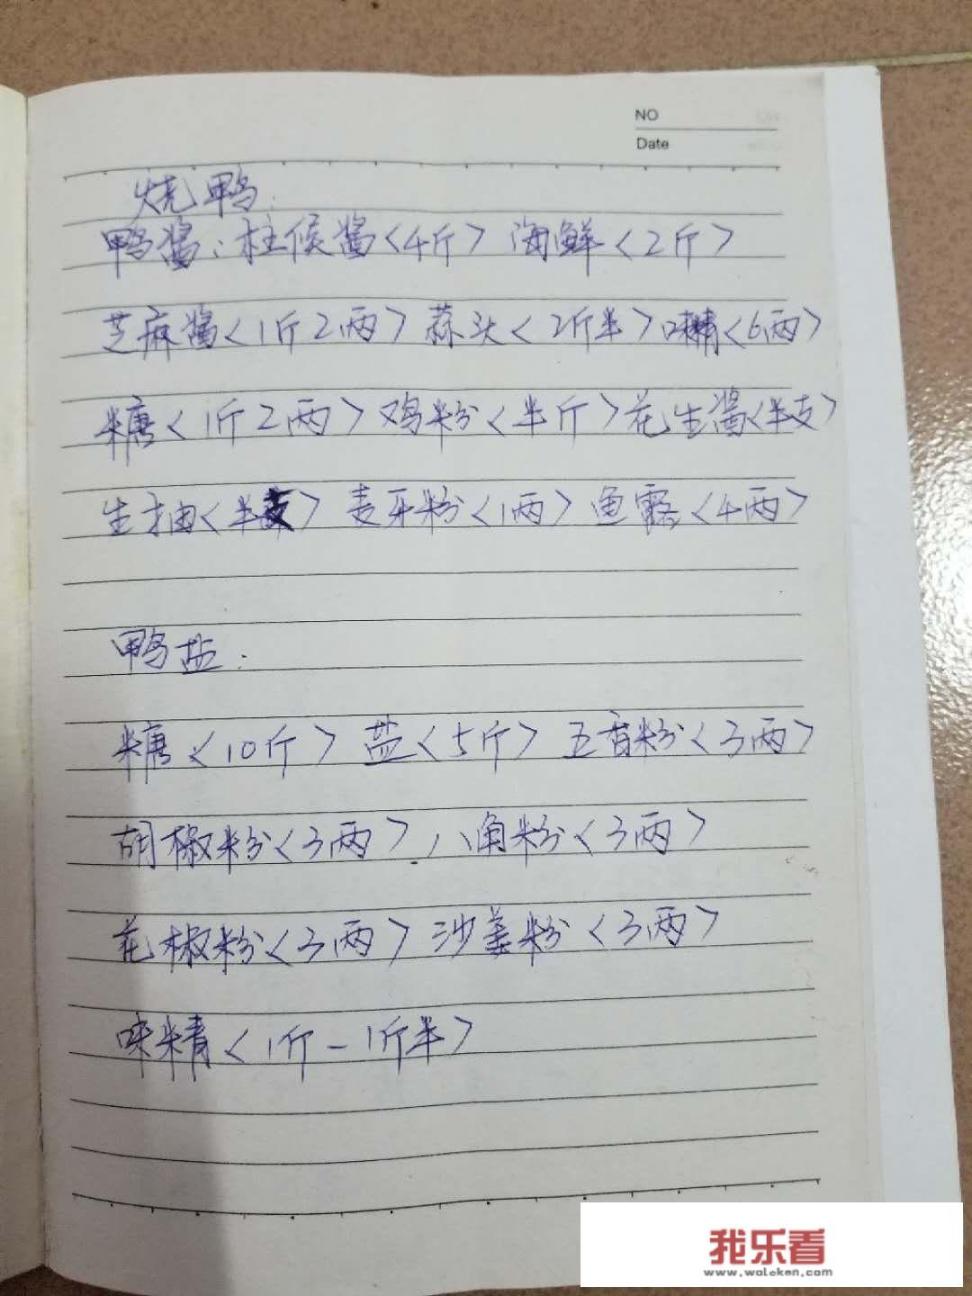 NO
Date
烧鸭:
鸭酱:柱侯酱<4斤> 海鲜<2斤>
芝麻酱<1斤2两>蒜头<2斤半>味精<6两>
糖<1斤2两>鸡粉<半斤>花生酱<半支>
生抽<半支> 麦牙粉<1两> 鱼露<4两>
鸭盐:
糖<10斤> 盐<5斤> 五香粉<3两>
胡椒粉<3两>,八角粉<3两>
花椒粉<3两> 沙姜粉<3两>
味精<1斤-1斤半>
我乐看
www.woleken.com